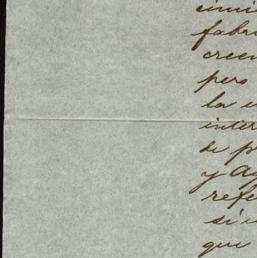 fabri
creen
pero
la u
inter
de p
y Ag
refe
si u
que